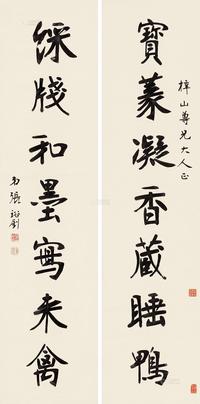 梓山尊兄大人正
寶篆凝香藏睡鴨
綵牋和墨寫來禽
弟張裕釗